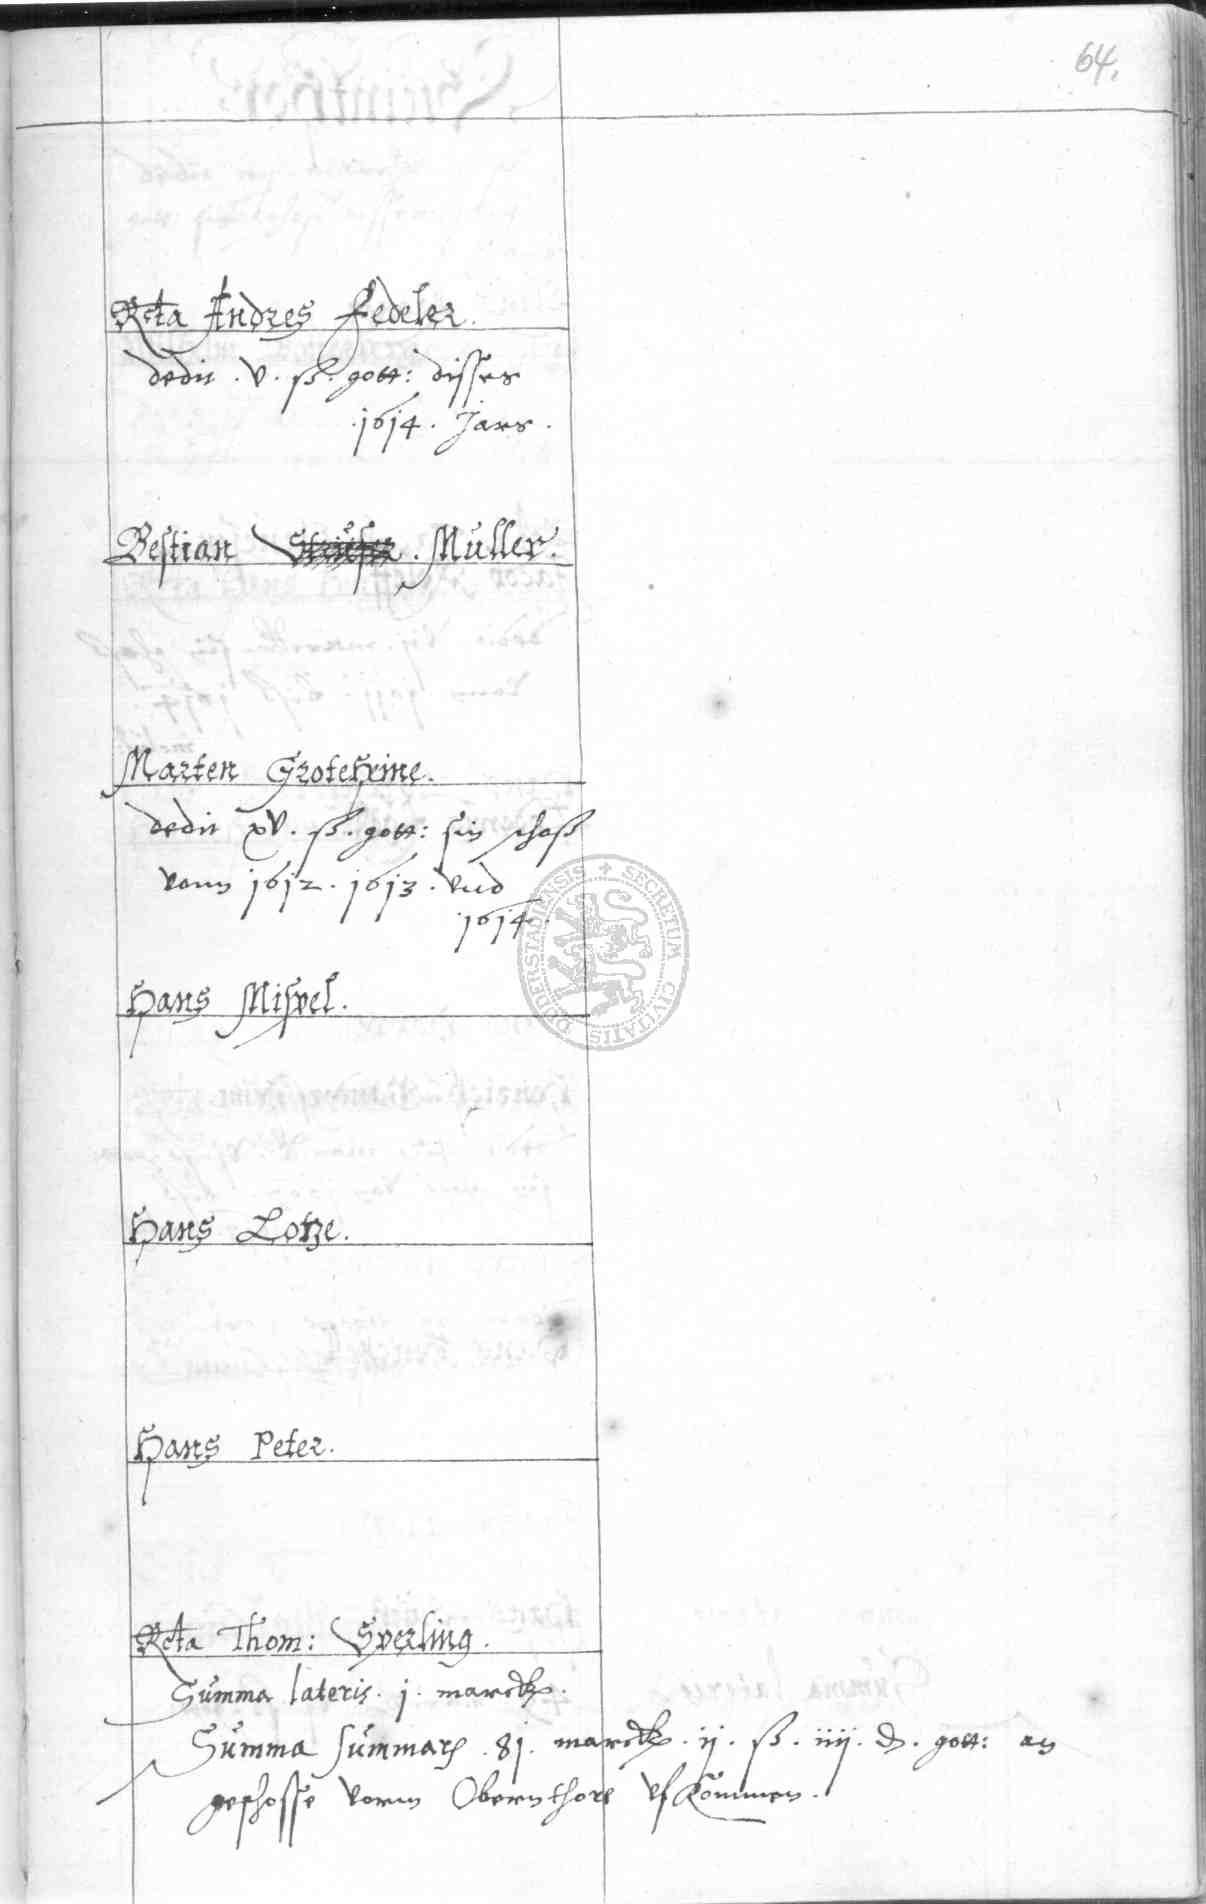 64.
Rcta Andres Fedeler.
dedit . v . ß . gott: disses
. 1614 . Jars .
Bestian . Müller .
Marten Grotehene.
dedit xv . ß . gott: sin schoß
vonn 1612 . 1613 . vnd
. 1614 .
Hans Mispel .
Hans Lotze .
Hans Peter .
Rcta Thom: Sperling .
Summa lateris . j . marck .
Summa summarum . 81 . marck . ij . ß . iiij . d . gott: an
geschosse vorm Obernthore vfkommen .
SECRETUM CIVITATIS DUDERSTADIENSIS